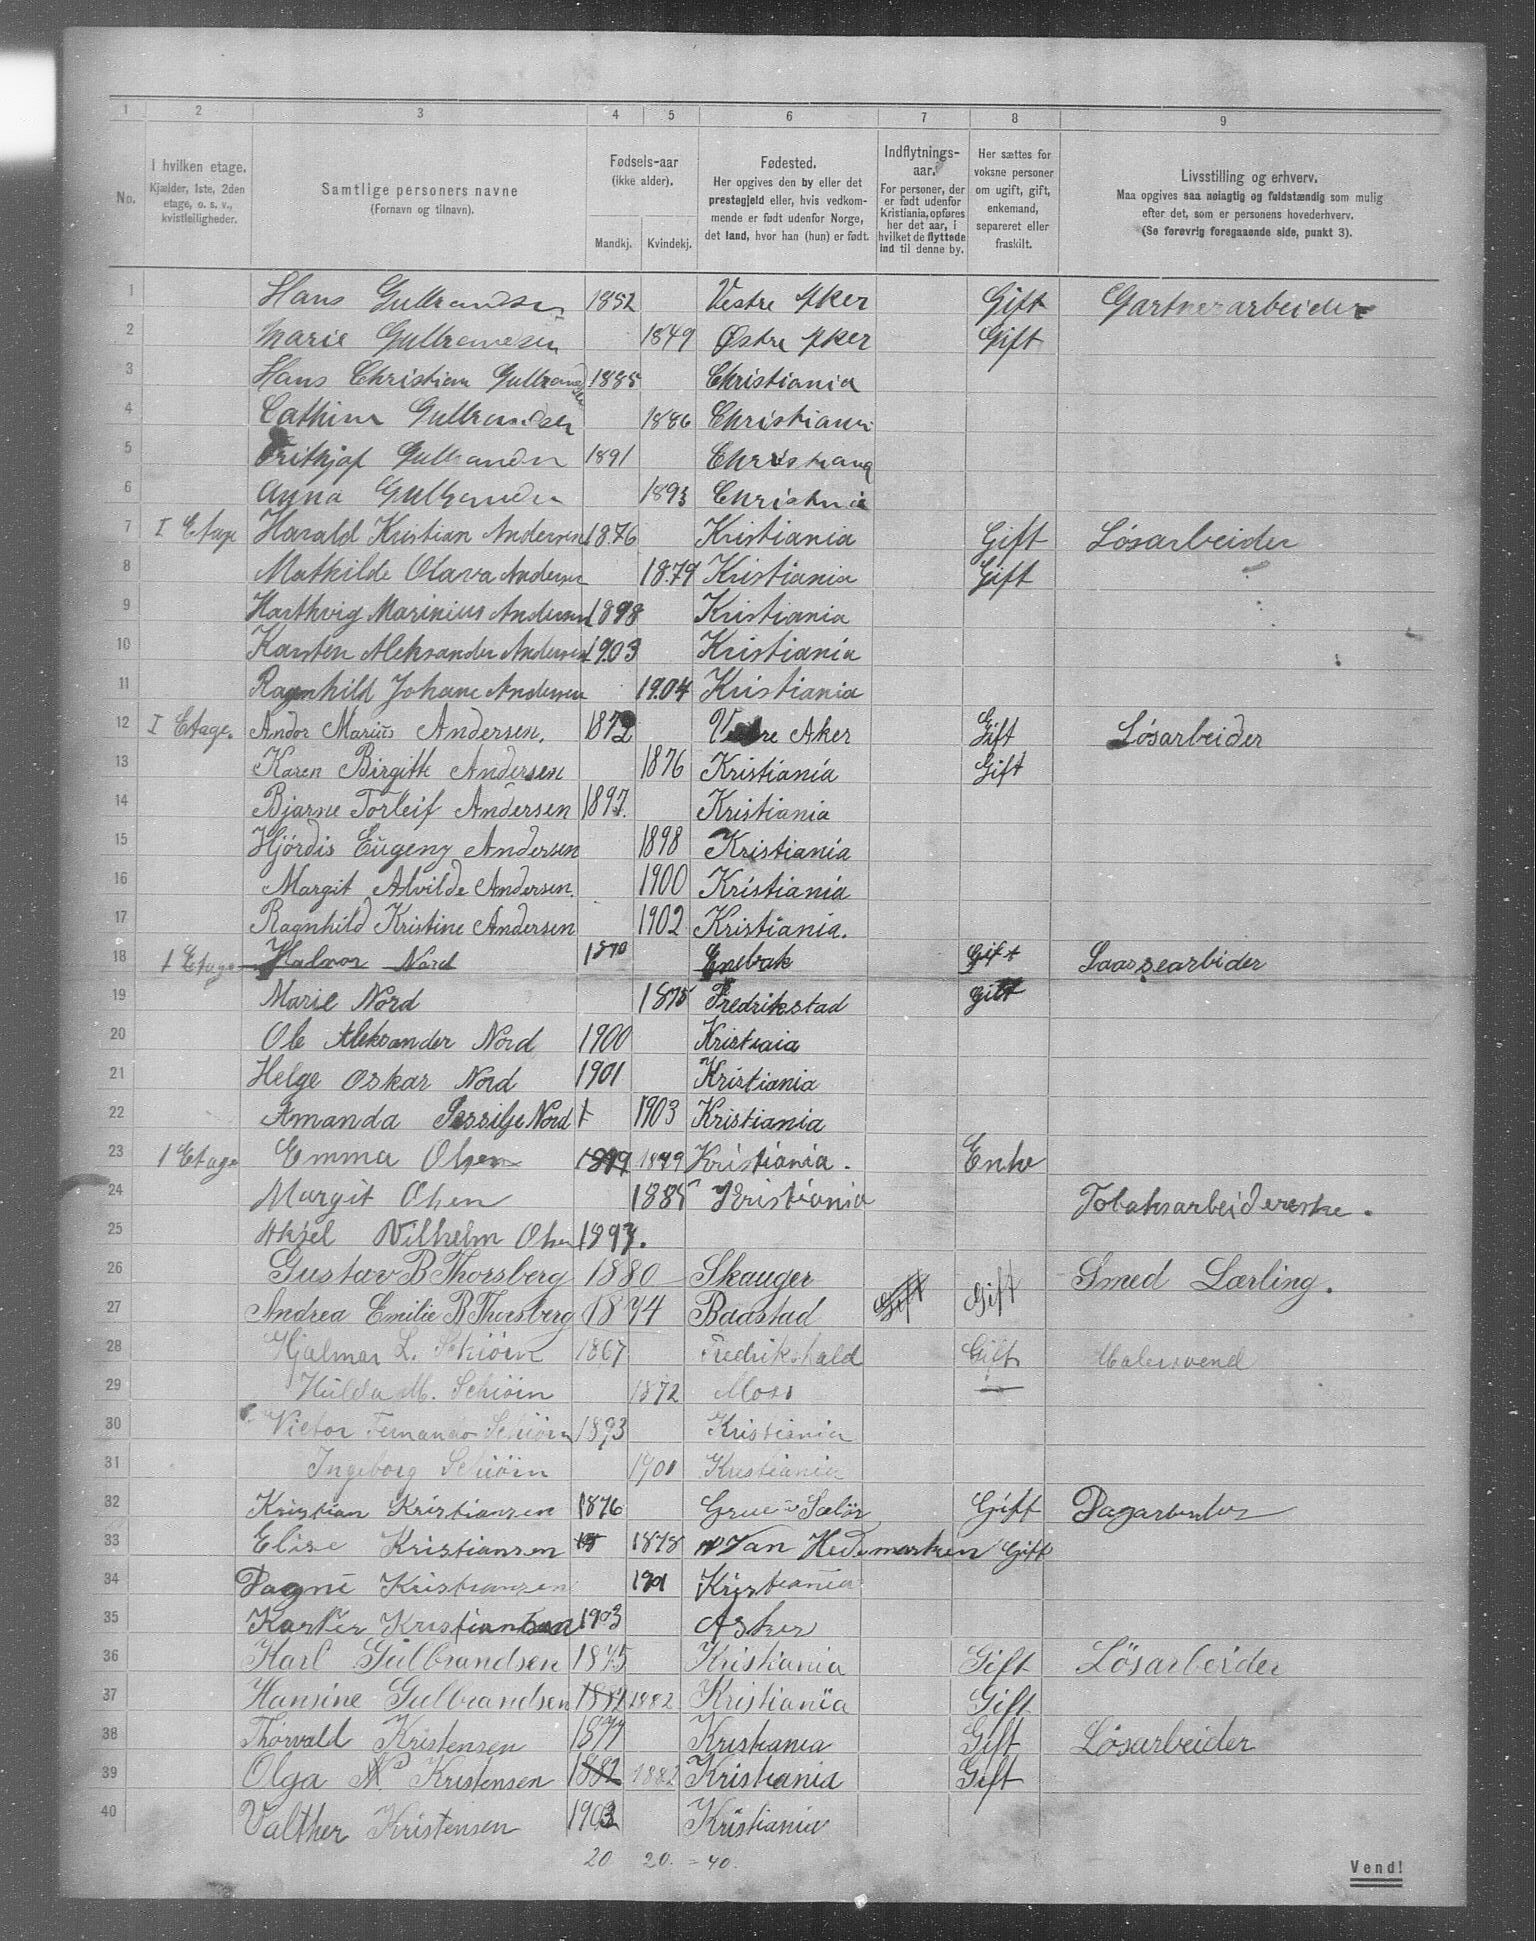 1 2 3 4 5 6 7 8 9
No.
I hvilken etage.
Kjælder, 1ste, 2den
etage, o. s. v.,
kvistleiligheder.
Samtlige personers navne
(Fornavn og tilnavn).
Fødsels-aar
(ikke alder).
Mandkj. Kvindekj.
Fødested.
Her opgives den by eller det
prestegjeld eller, hvis vedkom-
mende er født udenfor Norge,
det land, hvor han (hun) er født.
Indflytnings-
aar.
For personer, der
er født udenfor
Kristiania, opføres
her det aar, i
hvilket de flyttede
ind til denne by.
Her sættes for
voksne personer
om ugift, gift,
enkemand,
separeret eller
fraskilt.
Livsstilling og erhverv.
Maa opgives saa nøiagtig og fuldstændig som mulig
efter det, som er personens hovederhverv.
(Se forøvrig foregaaende side, punkt 3).
1 Hans Gulbrandsen 1852 Vestre Aker Gift Gartnerarbeider
2 Marie Gulbrandsen 1849 Østre Aker Gift
3 Hans Christian Gulbrandsen 1885 Christiania
4 Cathina Gulbrandsen 1886 Christiania
5 Frithjof Gulbrandsen 1891 Christiania
6 Anna Gulbrandsen 1893 Christania
7 I Etage Harald Kristian Andersen 1876 Kristiania Gift Løsarbeider
8 Mathilde Olava Andersen 1879 Kristiania Gift
9 Harthvig Marinius Andersen 1898 Kristiania
10 Karsten Aleksander Andersen 1903 Kristiania
11 Ragnhild Johane Andersen 1904 Kristiania
12 I Etage. Andor Marius Andersen. 1872 Vestre Aker Gift Løsarbeider
13 Karen Birgitte Andersen 1876 Kristiania Gift
14 Bjarne Torleif Andersen 1897. Kristiania
15 Hjördis Eugeny Andersen 1898 Kristiania
16 Margit Alvilde Andersen. 1900 Kristiania
17 Ragnhild Kristine Andersen 1902 Kristiania.
18 1 Etage Halvor Nord 1870 Enebak Gift Laassearbider
19 Marie Nord 1875 Fredrikstad Gift
20 Ole Aleksander Nord 1900 Kristiaia
21 Helge Oskar Nord 1901 Kristiania
22 Amanda Nord 1903 Kristiania
23 1 Etage Emma Olsen 1849 1849 Kristiania. Enke
24 Margit Olsen 1885 Kristiania Tobaksarbeidereske.
25 Aksel Vilhelm Olsen 1893.
26 Gustav B Thorsberg 1880 Skauger Smed Lærling.
27 Andrea Emilie B Thorsberg 1874 Baastad Gift Gift
28 Hjalmar L. Schiörn 1867 Fredrikshald Gift Malersvend
29 Hulda M. Schiörn 1872 Moss —
30 Victor Fernando Schiörn 1893 Kristiania
31 Ingeborg Schiörn 1901 Kristiania
32 Kristian Kristiansen 1876 Grue Solör Gift Dagarbeider
33 Elise Kristiansen 18 1878 Van Hedemarken Gift
34 Dagni Kristiansen 1901 Kristiania
35 Kristiansen 1903 Asker
36 Karl Gulbrandsen 1875 Kristiania Gift Løsarbeider
37 Hansine Gulbrandsen 1882 1882 Kristiania Gift
38 Thorvald Kristensen 1877 Kristiania Gift Løsarbeider
39 Olga Kristensen 1882 1882 Kristiania Gift
40 Valther Kristensen 1903 Kristiania
20 20. = 40.
Vend!